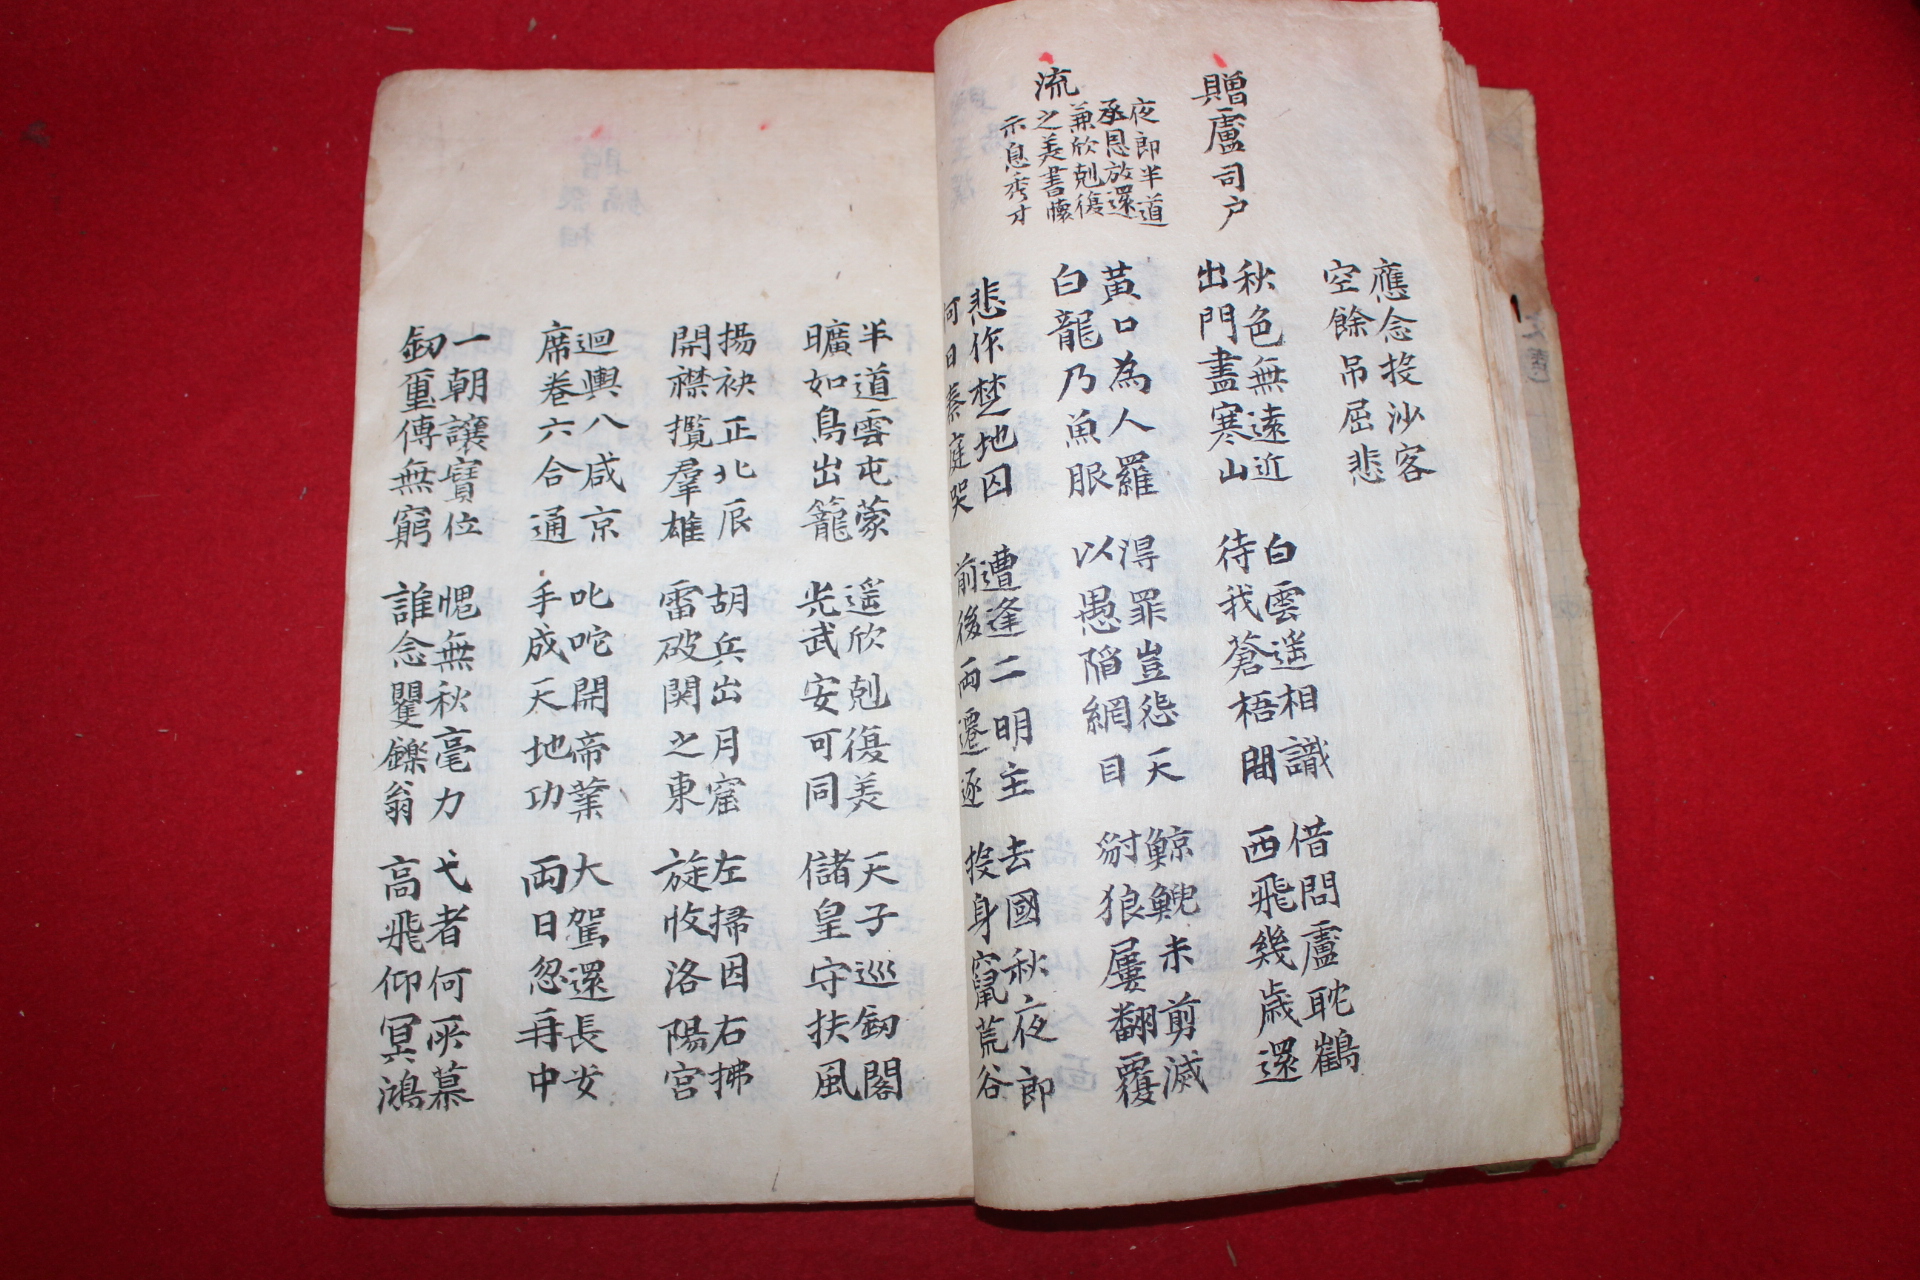 應念投沙客
空餘吊屈悲
贈盧司户
秋色無遠近
出門盡寒山
白雲遥相識
待我蒼梧間
借問盧耽鶴
西飛幾歲還
流
夜郎半道
丞恩放還
兼欣剋復
之美書懷
示息秀才
黃口為人羅
白龍乃魚眼
得罪豈怨天
以愚陷網目
鯨鯢未剪滅
豺狼屢翻覆
悲作楚地囚
何日秦庭哭
遭逢二明主
前後兩遷逐
去國秋夜郎
投身竄荒谷
半道雲屯蒙
曠如鳥出籠
遥欣剋復美
光武安可同
天子巡釼閣
儲皇守扶風
揚袂正北辰
開襟攬羣雄
胡兵出月窟
雷破関之東
左掃因右拂
旋收洛陽宮
迴輿八咸京
席卷六合通
叱咤開帝業
手成天地功
大駕還長安
兩日忽再中
一朝讓寳位
釼璽傳無窮
愧無秋毫力
誰念矍鑠翁
弋者何所慕
高飛仰冥鴻